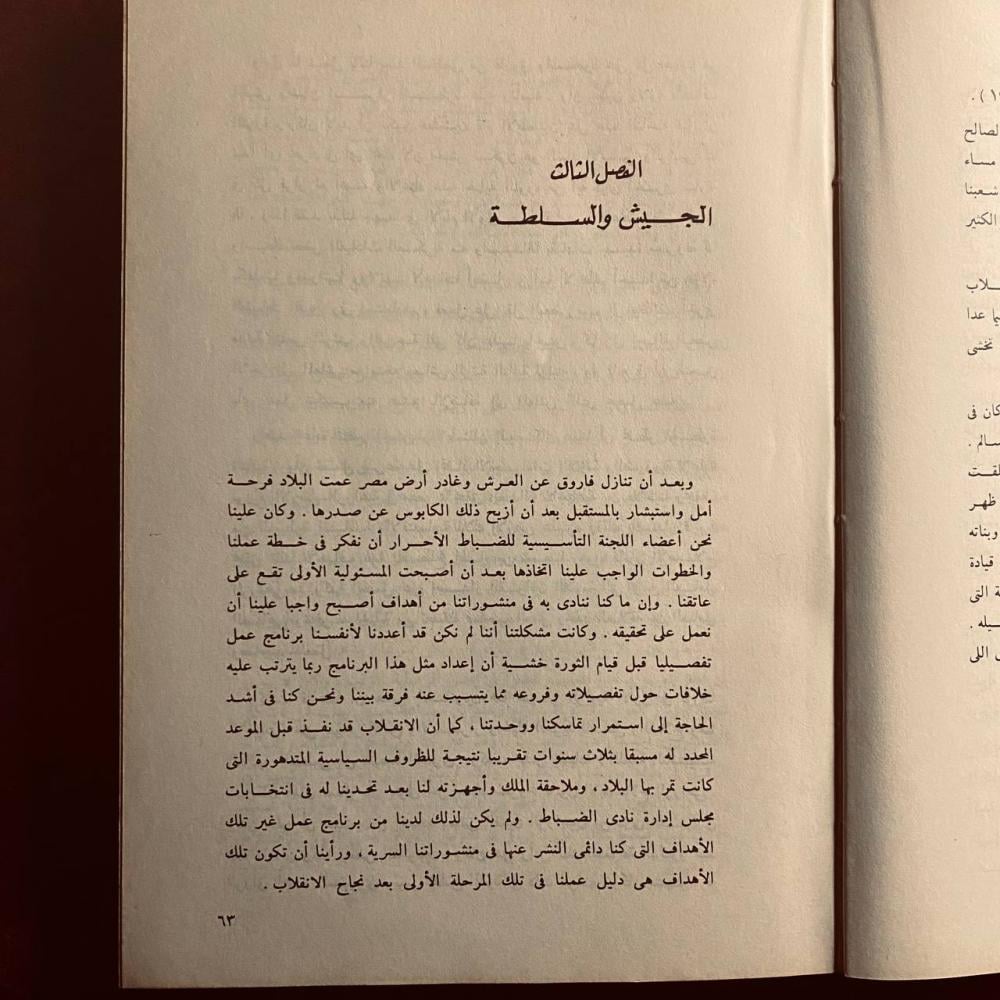 الفصل الثالث
الجـــيش والســـلطـــة
وبعـد أن تنازل فاروق عن العـرش وغادر أرض مصر عمت البلاد فرحـــة
أمل واستبشار بالمستقبل بعد أن أزيح ذلك الكابوس عن صـدرها . وكان علينا
نحن أعضاء اللجنة التأسـيسية للضـباط الأحـرار أن نفكر فى خـطة عملنا
والخطوات الواجب علينا اتخاذها بعـد أن أصـبحت المسـئولية الأولى تقـع على
عاتقنا . وإن ما كنا ننادى به فى منشـوراتنا من أهداف أصـــبح واجبا علينا أن
نعمل على تحقيقه . وكانت مشكلتنا أننا لم نكن قد أعددنا لأنفسـنا برنامج عمل
تفصـــيليا قبل قيام الثورة خشـــية أن إعداد مثل هذا البرنامج ربما يترتب عليه
خلافات حول تفصـيلاته وفروعه مما يتسـبب عنه فرقة بيننا ونحـن كنا فى أشـد
الحاجة إلى اسـتمرار تماسكنا ووحـدتنا ، كما أن الانقـلاب قد نفـذ قبل الموعد
المحدد له مسبقا بثلاث سنوات تقريبا نتيجـة للظروف السـياسية المتدهورة التى
كانت تمر بها البلاد ، وملاحقة الملك وأجهـزته لنا بعـد تحـدينا له فى انتخـابات
مجلس إدارة نادى الضـــباط . ولم يكن لذلك لدينا من برنامج عمل غير تلك
الأهداف التى كنا دائمى النشر عنها فى منشـوراتنا السرية ، ورأينا أن تكون تلك
الأهداف هى دليل عملنا فى تلك المرحلة الأولى بعد نجاح الانقلاب .
٦٣
لصالح
مسـاء
شعبنا
الكثير
ـلاب
عدا
تخشى
كان فى
سالم .
ظهر
وبناته
قيادة
التى
ـيله .
اللى